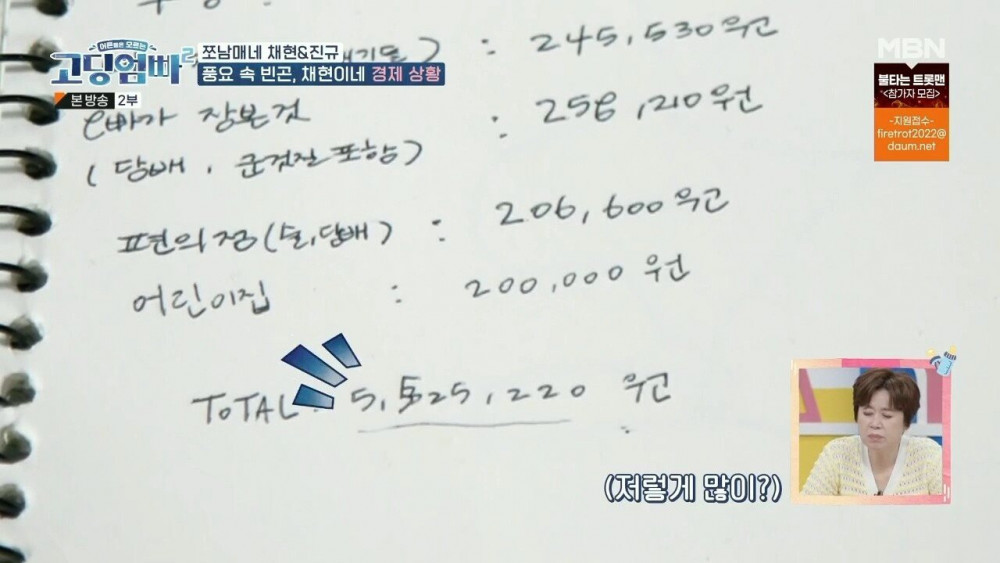 어른들은 모르는
고딩엄빠2
쪼남매네 채현&진규
풍요 속 빈곤, 채현이네 경제 상황
본 방송 2부
MBN
불타는 트롯맨
<참가자 모집>
-지원접수-
firetrot2022@
daum.net
) : 245,530원
오빠가 장본것 : 258,210원
(담배, 군것질 포함)
편의점(술,담배) : 206,600원
어린이집 : 200,000원
TOTAL : 5,525,220 원
(저렇게 많이?)